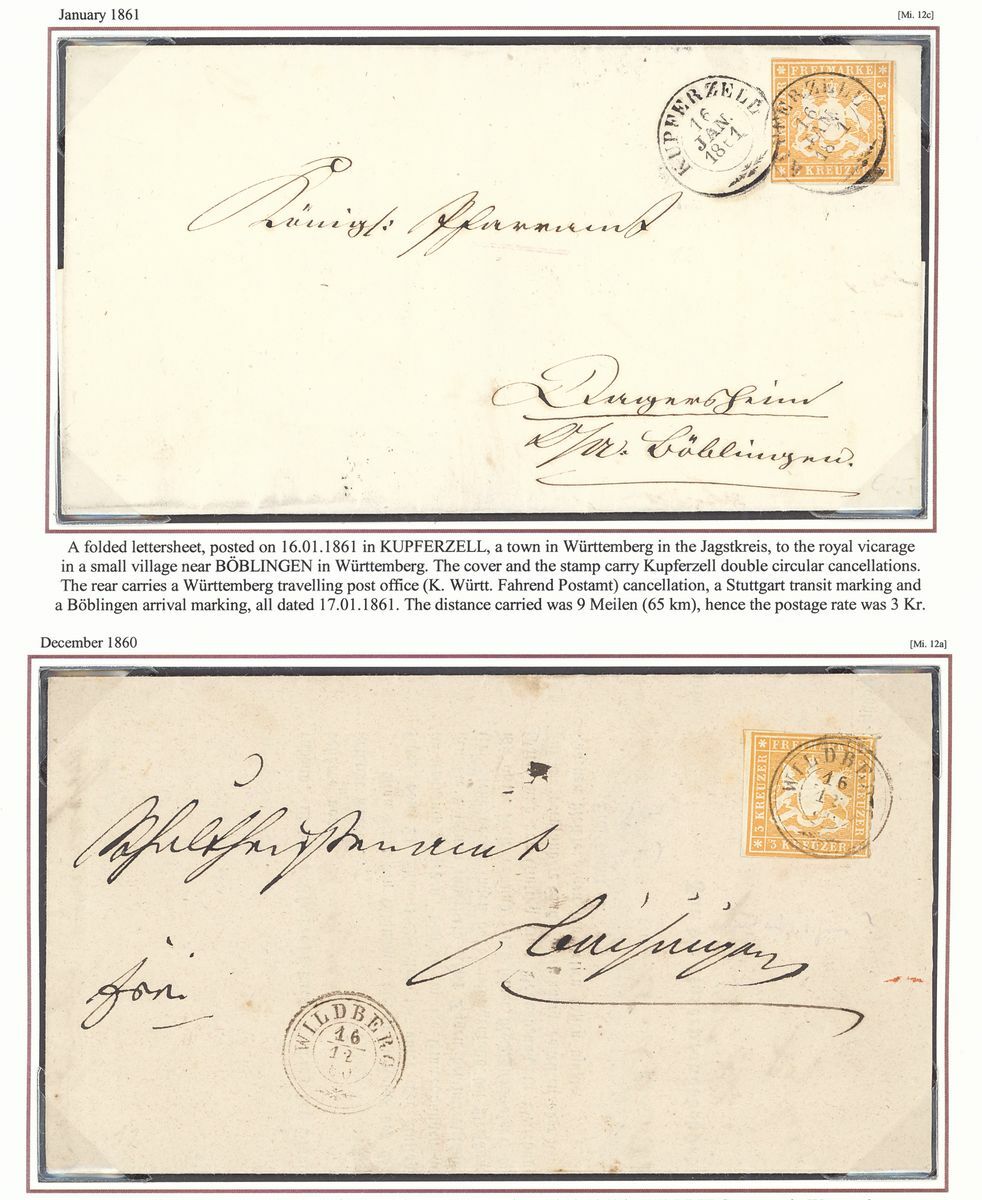 January 1861
[Mi. 12c]
KUPFERZELL
16
JAN.
1861
FREIMARKE
KREUZER
Königl: Pfarramt
Dagersheim
O/A. Böblingen.
A folded lettersheet, posted on 16.01.1861 in KUPFERZELL, a town in Württemberg in the Jagstkreis, to the royal vicarage
in a small village near BÖBLINGEN in Württemberg. The cover and the stamp carry Kupferzell double circular cancellations.
The rear carries a Württemberg travelling post office (K. Württ. Fahrend Postamt) cancellation, a Stuttgart transit marking and
a Böblingen arrival marking, all dated 17.01.1861. The distance carried was 9 Meilen (65 km), hence the postage rate was 3 Kr.
December 1860
[Mi. 12a]
3 KREUZER
3 KREUZER
WILDBERG
16
Schultheißenamt
frei.
WILDBERG
16
12